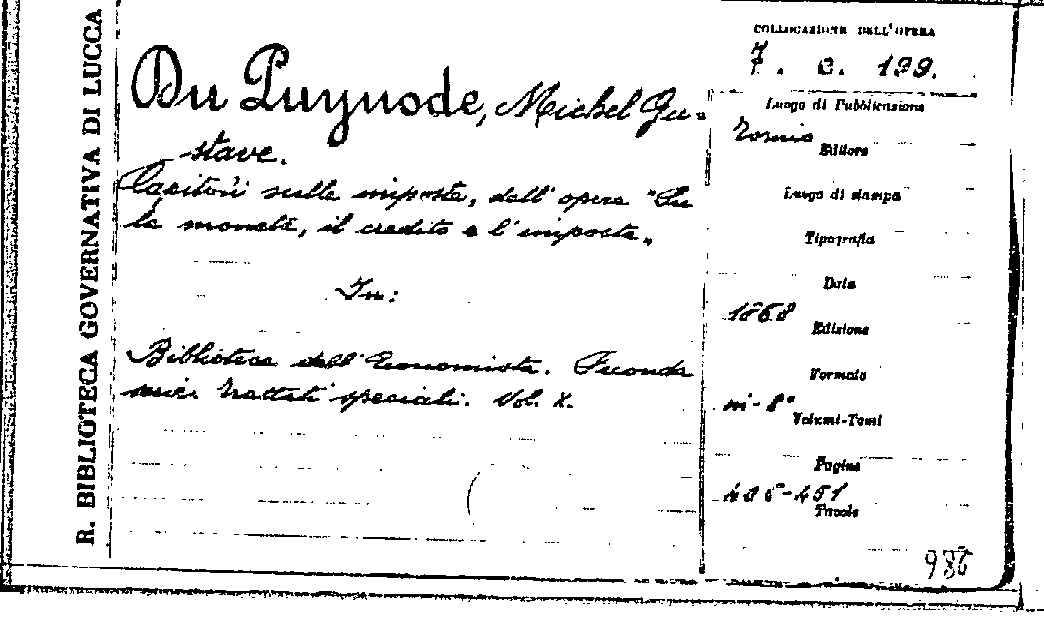 R. BIBLIOTECA GOVERNATIVA DI LUCCA
Du Puynode, Michel Gu-
stave.
Capitoli sulla imposta, dell'opera "Su
la moneta, il credito e l'imposta„
In:
Biblioteca dell'Economista. Seconda
serie. Trattati speciali. Vol. X.
COLLOCAZIONE DELL'OPERA
7. C. 199.
Luogo di Pubblicazione
Torino
Editore
Luogo di stampa
Tipografia
Data
1868
Edizione
Formato
in-8°
Volumi-Tomi
Pagine
Tavole